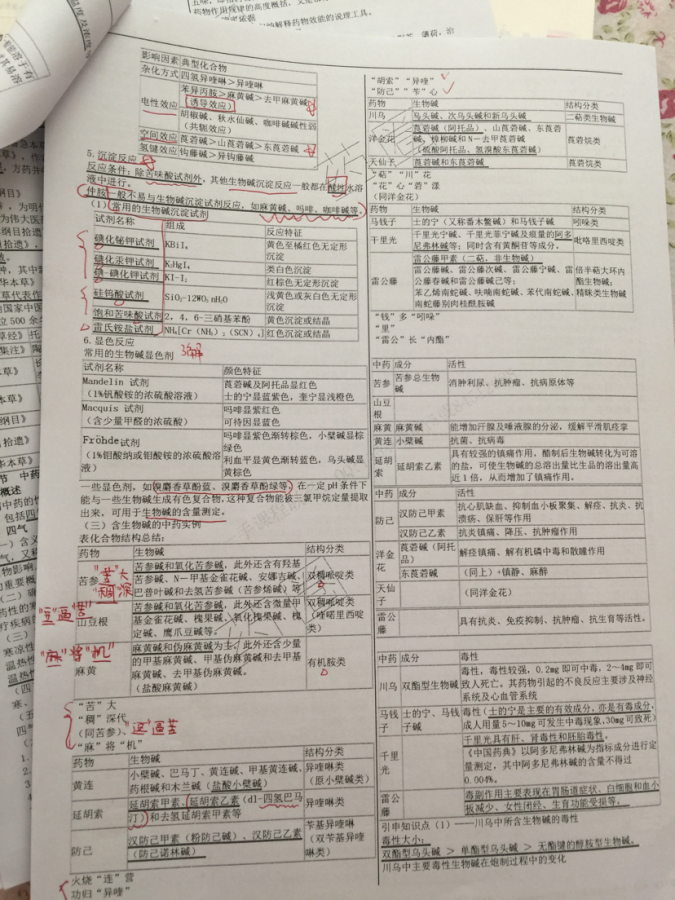 影响因素 典型化合物
杂化方式 四氢异喹啉＞异喹啉
电性效应
苯异丙胺＞麻黄碱＞去甲麻黄碱
（诱导效应）
胡椒碱、秋水仙碱、咖啡碱碱性弱
（共轭效应）
空间效应 莨菪碱＞山莨菪碱＞东莨菪碱
氢键效应 钩藤碱＞异钩藤碱
5. 沉淀反应
反应条件：除苦味酸试剂外，其他生物碱沉淀反应一般都在酸性水溶
液中进行。
仲胺一般不易与生物碱沉淀试剂反应，如麻黄碱、吗啡、咖啡碱等。
（1）常用的生物碱沉淀试剂
试剂名称 组成 反应特征
碘化铋钾试剂 KBiI₄ 黄色至橘红色无定形
沉淀
碘化汞钾试剂 K₂HgI₄ 类白色沉淀
碘-碘化钾试剂 KI-I₂ 红棕色无定形沉淀
硅钨酸试剂 SiO₂·12WO₃·nH₂O 浅黄色或灰白色无定形
沉淀
饱和苦味酸试剂 2，4，6-三硝基苯酚 黄色沉淀或结晶
雷氏铵盐试剂 NH₄[Cr（NH₃）₂（SCN）₄] 红色沉淀或结晶
6. 显色反应
常用的生物碱显色剂
试剂名称 颜色特征
Mandelin 试剂
（1%钒酸铵的浓硫酸溶液）
莨菪碱及阿托品显红色
士的宁显蓝紫色，奎宁显浅橙色
Macquis 试剂
（含少量甲醛的浓硫酸）
吗啡显紫红色
可待因显蓝色
Fröhde试剂
（1%钼酸钠或钼酸铵的浓硫酸溶
液）
吗啡显紫色渐转棕色，小檗碱显棕
绿色
利血平显黄色渐转蓝色，乌头碱显
黄棕色
一些显色剂，如溴麝香草酚蓝、溴麝香草酚绿等，在一定 pH 条件下
能与一些生物碱生成有色复合物，这种复合物能被三氯甲烷定量提取
出来，可用于生物碱的含量测定。
（三）含生物碱的中药实例
表化合物结构总结：
药物 生物碱 结构分类
苦参
苦参碱和氧化苦参碱，此外还含有羟基
苦参碱、N一甲基金雀花碱、安娜吉碱、
巴普叶碱和去氢苦参碱（苦参烯碱）等
双稠哌啶类
"苦"大
"稠"深
山豆根
苦参碱和氧化苦参碱，此外还含微量甲
基金雀花碱、槐果碱、氧化槐果碱、槐
定碱、鹰爪豆碱等。
双稠哌啶类
（喹喏里西啶
类）
"豆"逼苦
麻黄
麻黄碱和伪麻黄碱为主，此外还含少量
的甲基麻黄碱、甲基伪麻黄碱和去甲基
麻黄碱、去甲基伪麻黄碱。
（盐酸麻黄碱）
有机胺类
"麻"将"机"
"苦"大
"稠"深代
（同苦参）、"豆"逼苦
"麻"将"机"
药物 生物碱 结构分类
黄连
小檗碱、巴马丁、黄连碱、甲基黄连碱、
药根碱和木兰碱（盐酸小檗碱）
异喹啉类
（原小檗碱类）
延胡索
延胡索甲素、延胡索乙素（dl-四氢巴马
汀）和去氢延胡索甲素等
异喹啉类
防己
汉防己甲素（粉防己碱）、汉防己乙素
（防己诺林碱）
苄基异喹啉
（双苄基异喹
啉类）
火烧"连"营
功归"异喹"
"胡索"异喹"
"防己""苄"心
药物 生物碱 结构分类
川乌 乌头碱、次乌头碱和新乌头碱 二萜类生物碱
洋金花
莨菪碱（阿托品）、山莨菪碱、东莨菪
碱、樟柳碱和 N一去甲莨菪碱
（硫酸阿托品、氢溴酸东莨菪碱）
莨菪烷类
天仙子 莨菪碱和东莨菪碱 莨菪烷类
"萜""川"花
"花"心"莨"漾
（同洋金花）
药物 生物碱 结构分类
马钱子 士的宁（又称番木鳖碱）和马钱子碱 吲哚类
千里光
千里光宁碱、千里光菲宁碱及痕量的阿多
尼弗林碱等；同时含有黄酮苷等成分。
吡咯里西啶类
雷公藤
雷公藤甲素（二萜，非生物碱）
雷公藤碱、雷公藤次碱、雷公藤宁碱、雷
公藤春碱和雷公藤碱己等；
苯乙烯南蛇碱、呋喃南蛇碱、苯代南蛇碱、
南蛇藤别肉桂酰胺碱
倍半萜大环内
酯生物碱；
精眯类生物碱
"钱"多"吲哚"
"里"
"雷公"长"内酯"
中药 成分 活性
苦参 苦参总生物
碱
消肿利尿、抗肿瘤、抗病原体等
山豆
根
麻黄 麻黄碱 能增加汗腺及唾液腺的分泌，缓解平滑肌痉挛
黄连 小檗碱 抗菌、抗病毒
延胡
索
延胡索乙素
具有较强的镇痛作用，醋制后生物碱转化为可溶
的盐，可使生物碱的总溶出量比生品的溶出量高
近 1 倍，从而增加了镇痛作用。
中药 成分 活性
防己
汉防己甲素
抗心肌缺血、抑制血小板聚集、解痉、抗炎、抗
溃疡、保肝等作用
汉防己乙素 抗炎镇痛、降压、抗肿瘤作用
洋金
花
莨菪碱（阿托
品）
解痉镇痛、解有机磷中毒和散瞳作用
东莨菪碱 （同上）+镇静、麻醉
天仙
子
（同洋金花）
雷公
藤
具有抗炎、免疫抑制、抗肿瘤、抗生育等活性。
中药 成分 毒性
川乌 双酯型生物碱
毒性，毒性较强，0.2mg 即可中毒，2～4mg 即可
致人死亡。其药物引起的不良反应主要涉及神经
系统及心血管系统
马钱
子
士的宁、马钱
子碱
毒性（士的宁是主要的有效成分，亦是有毒成分，
成人用量 5～10mg 可发生中毒现象，30mg 可致死）
千里
光
千里光具有肝、肾毒性和胚胎毒性。
《中国药典》以阿多尼弗林碱为指标成分进行定
量测定，其中阿多尼弗林碱的含量不得过
0.004%。
雷公
藤
毒副作用主要表现在胃肠道症状、白细胞和血小
板减少、女性闭经、生育功能受损等。
引申知识点（1）——川乌中所含生物碱的毒性
毒性大小：
双酯型乌头碱 ＞ 单酯型乌头碱 ＞ 无酯键的醇胺型生物碱。
川乌中主要毒性生物碱在炮制过程中的变化